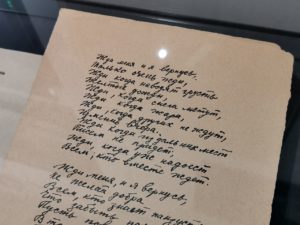 Жди меня и я вернусь,
Только очень жди.
Жди когда наводят грусть
Желтые дожди,
Жди когда снега метут,
Жди когда жара,
Жди когда других не ждут,
Изменив вчера.
Жди когда из дальних мест
Писем не придет,
Жди, когда уже надоест
Всем, кто вместе ждет.
Жди меня, и я вернусь,
Не желай добра
Всем, кто знает наизусть,
Что забыть пора.
Пусть по